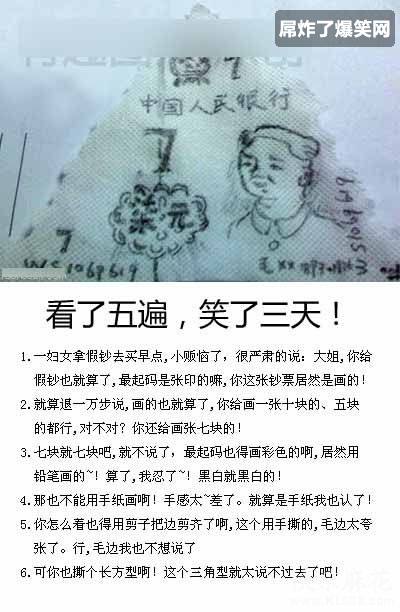 屌炸了爆笑网
7
中国人民银行
7
柒元
7
看了五遍，笑了三天！
1.一妇女拿假钞去买早点,小贩恼了，很严肃的说：大姐,你给
假钞也就算了,最起码是张印的嘛,你这张钞票居然是画的！
2.就算退一万步说,画的也就算了,你给画一张十块的、五块
的都行,对不对？你还给画张七块的！
3.七块就七块吧,就不说了，最起码也得画彩色的啊,居然用
铅笔画的~！算了,我忍了~！黑白就黑白的！
4.那也不能用手纸画啊！手感太~差了。就算是手纸我也认了！
5.你怎么看也得用剪子把边剪齐了啊,这个用手撕的,毛边太夸
张了。行,毛边我也不想说了
6.可你也撕个长方型啊！这个三角型就太说不过去了吧！